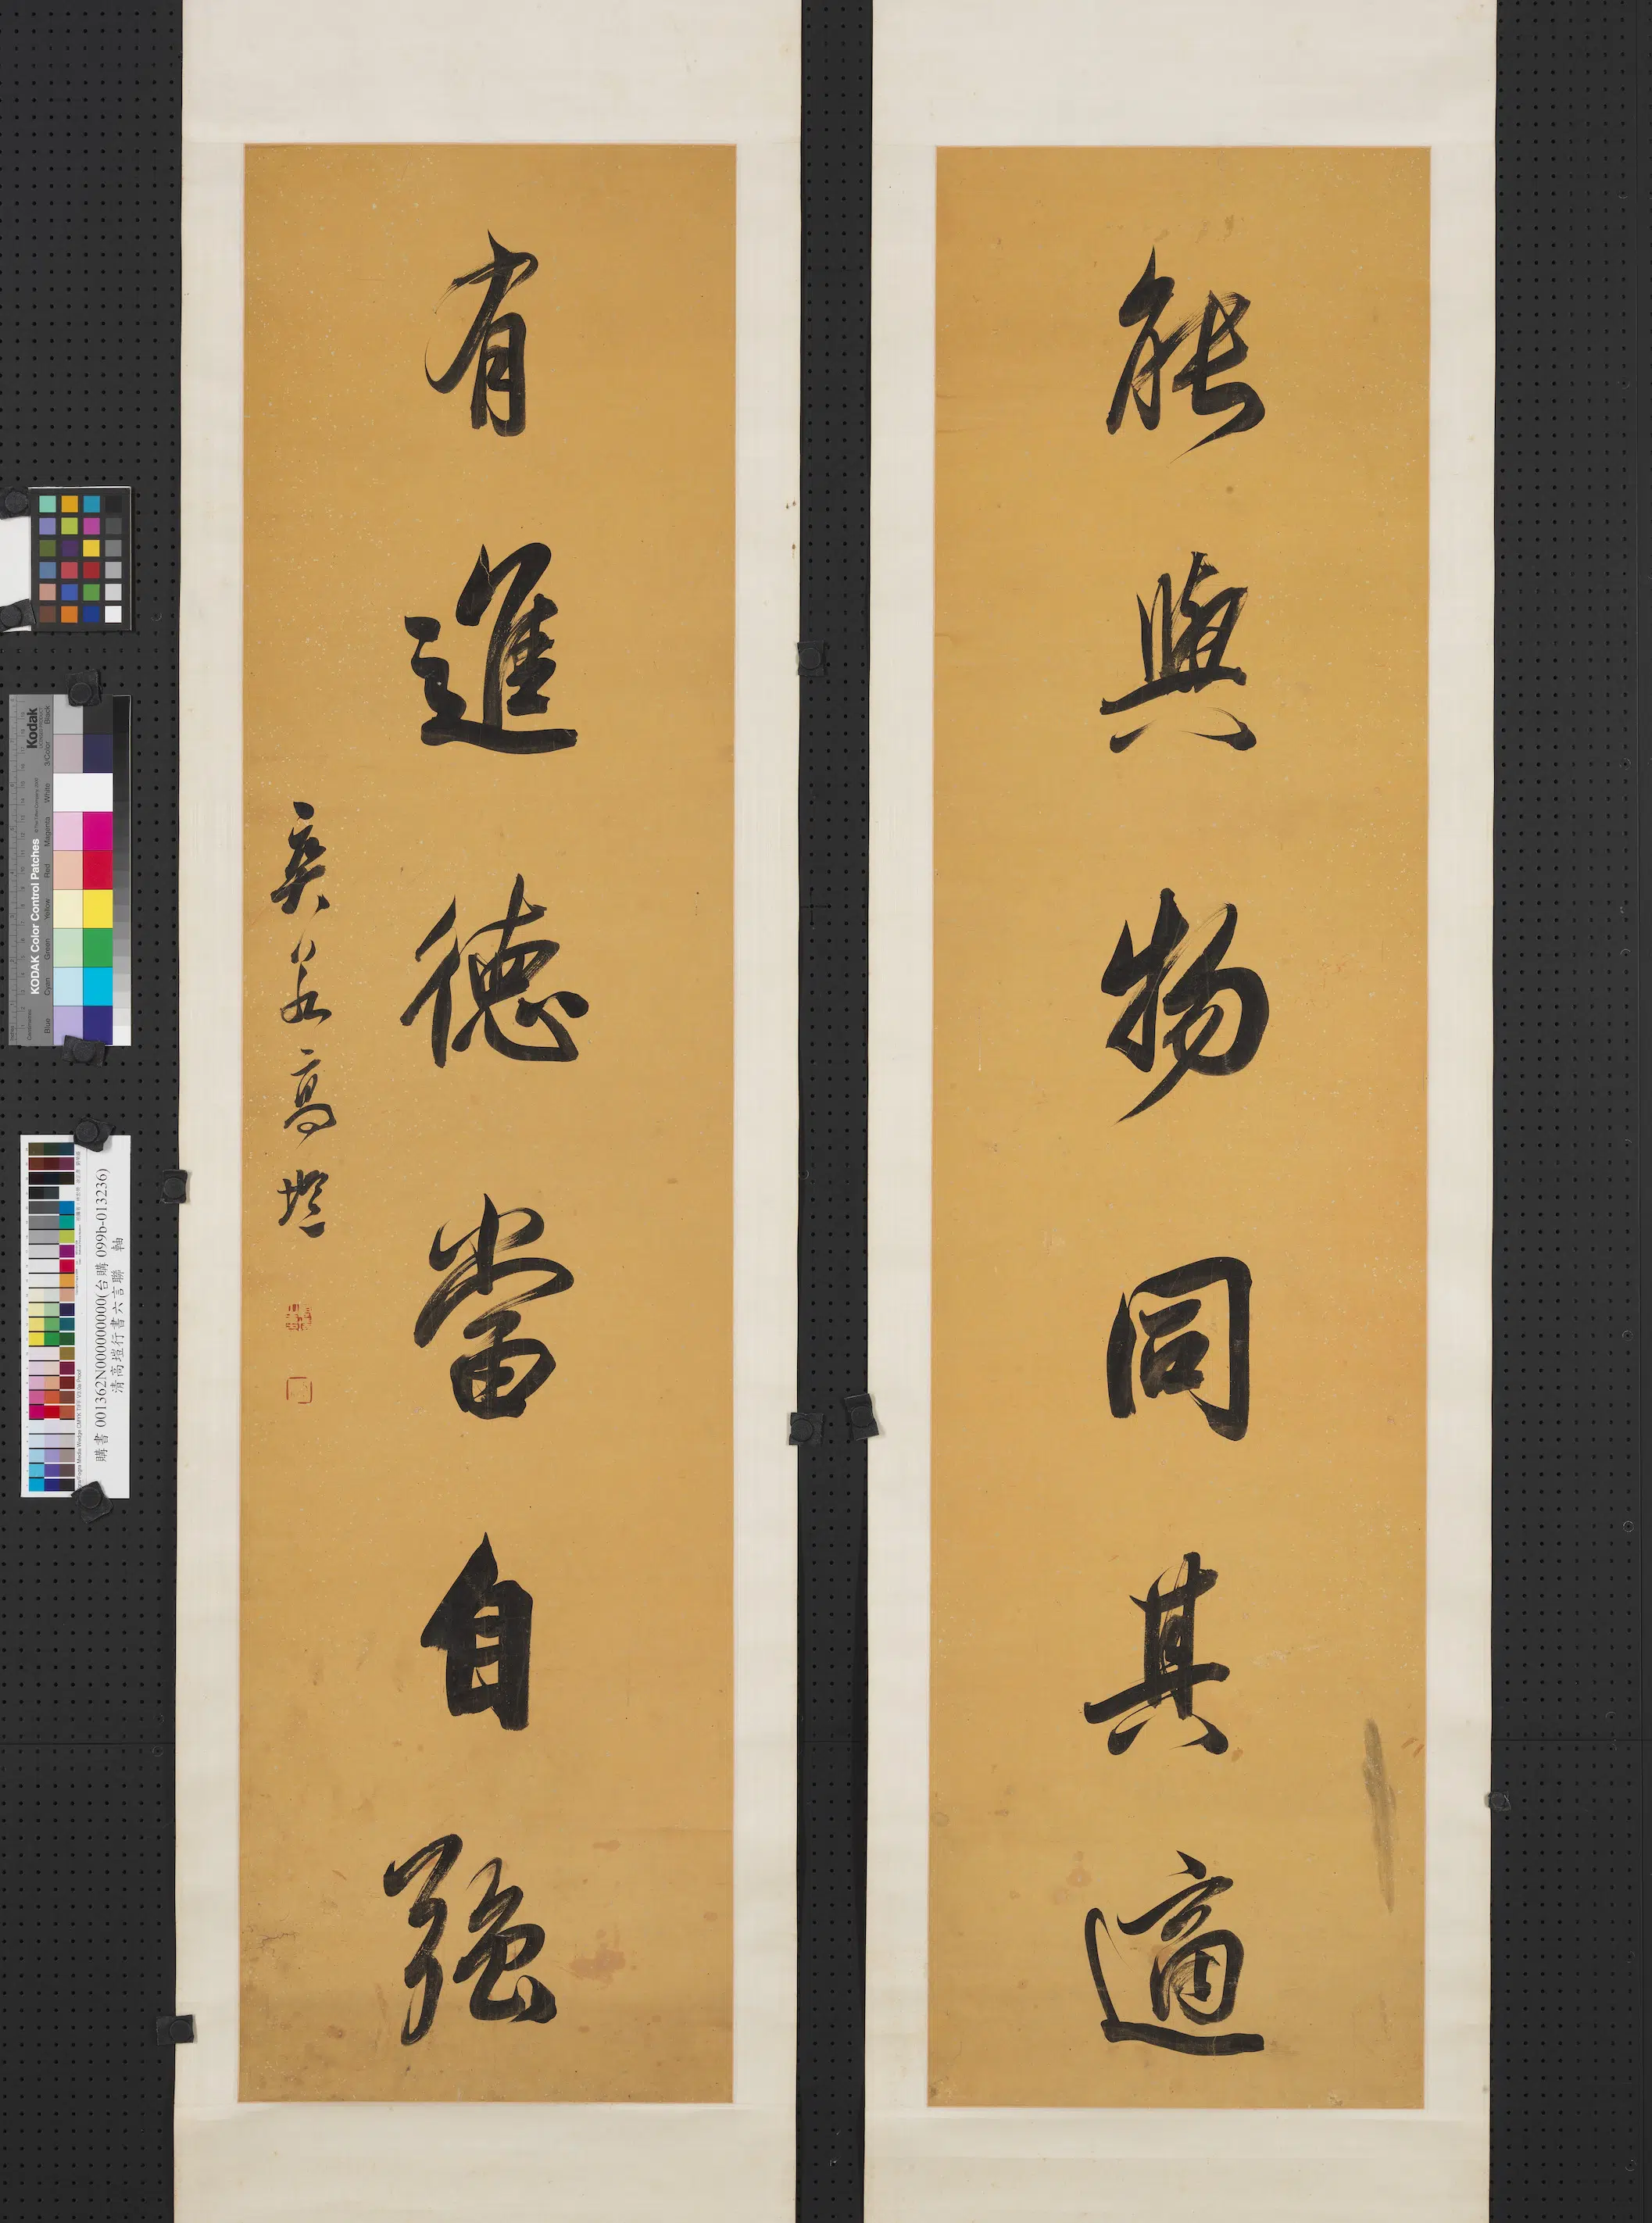 能與物同其適
有進德當自強
奕若高塏
購書 001362N000000000(台購 099b-013236)
清高塏行書六言聯 軸
Kodak
KODAK Color Control Patches
Blue Cyan Green Yellow Red Magenta White 3/Color Black